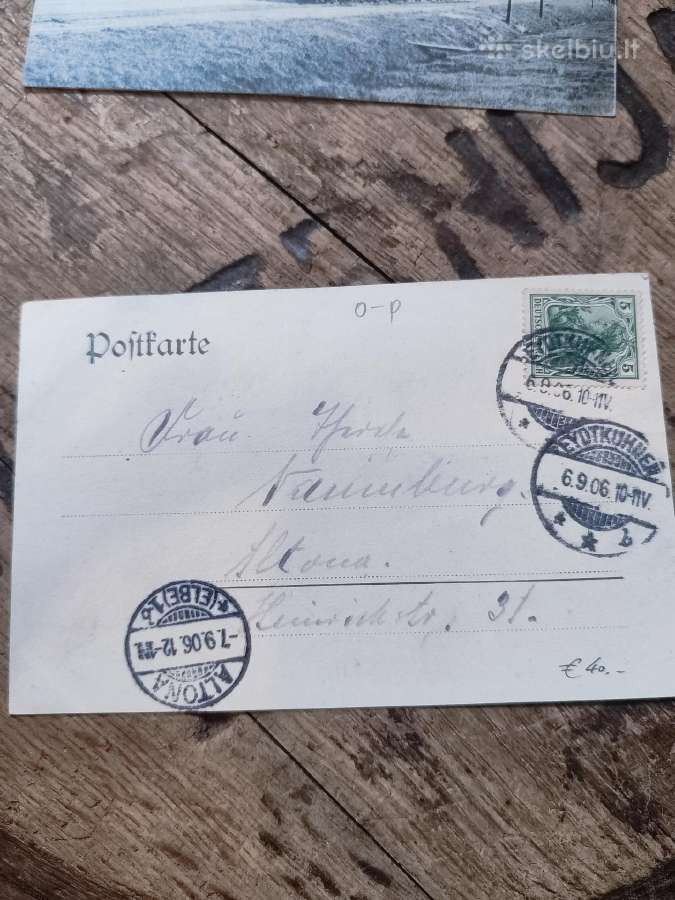 skelbiu.lt
O-P
Postkarte
5 5
DEUTSCHES REICH
EYDTKUHNEN
6.9.06. 10-11V.
EYDTKUHNEN
6.9.06. 10-11V.
* * b
Frau
Naumburg.
Altona.
Heinrichstr. 31.
ALTONA
-7.9.06. 12-1
* (ELBE) 1 b
€ 40.-